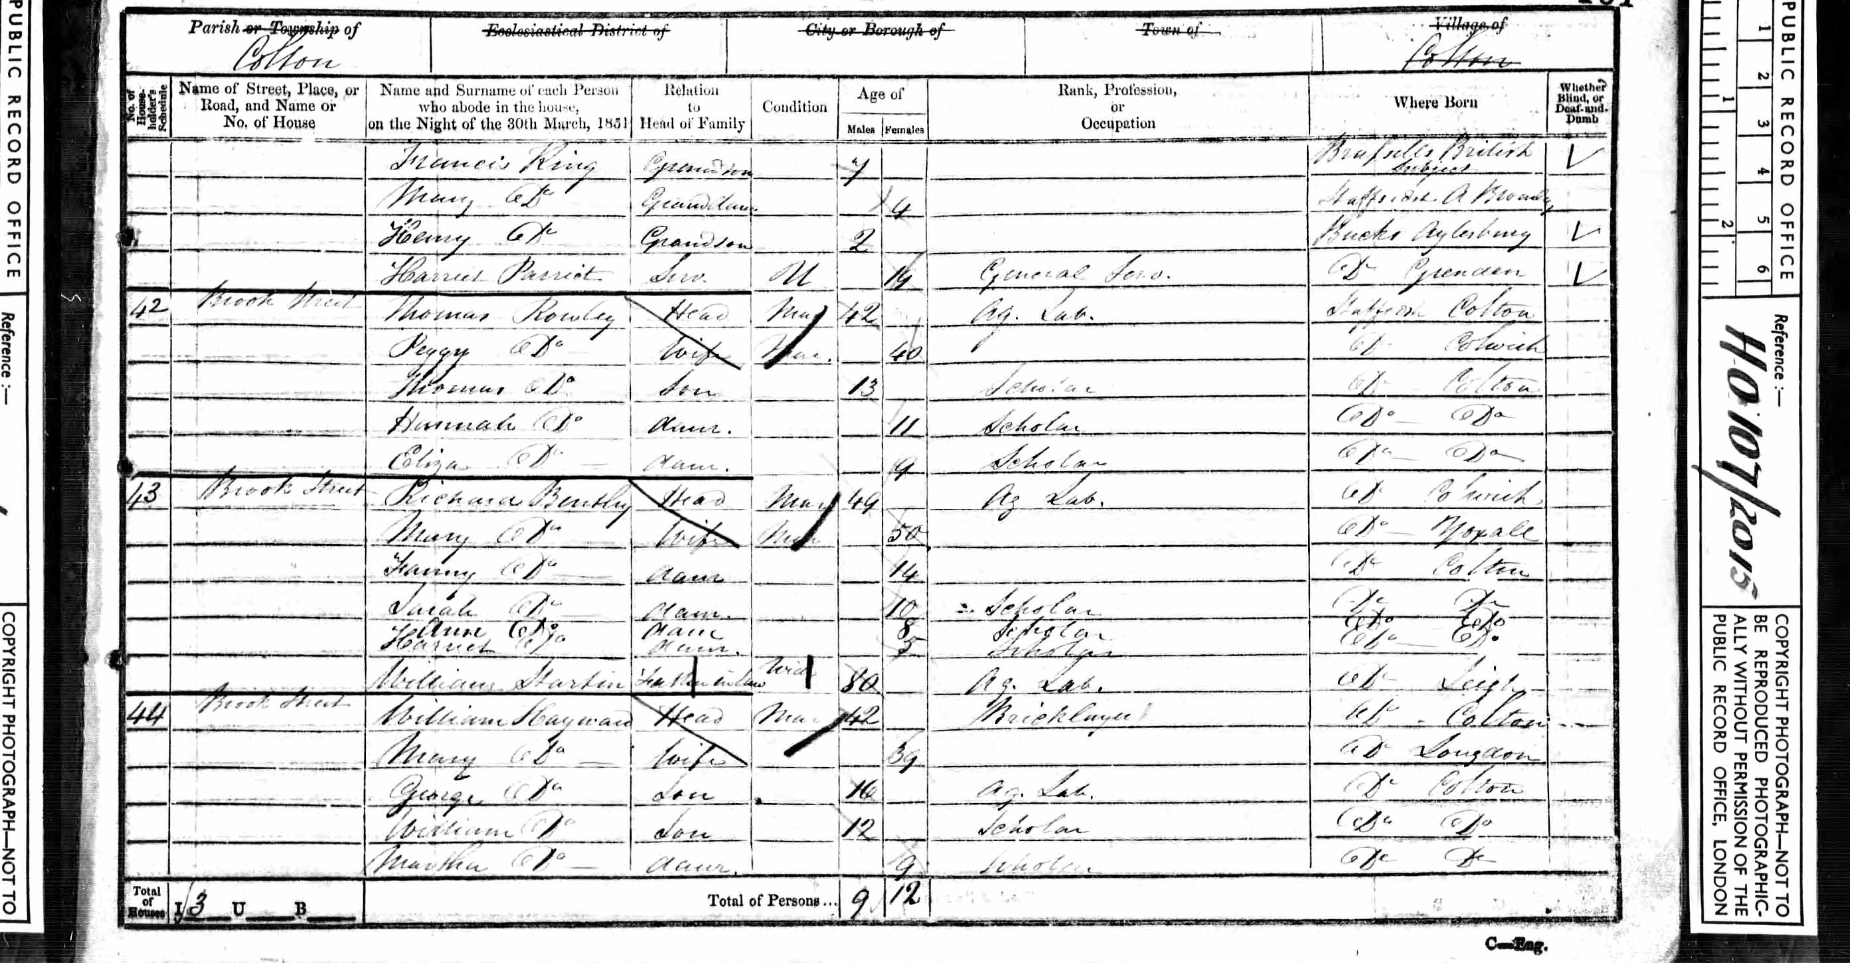 Parish or Township of Ecclesiastical District of City or Borough of Town of Village of
Colton Colton
No. of House-holder's Schedule Name of Street, Place, or Road, and Name or No. of House Name and Surname of each Person who abode in the house, on the Night of the 30th March, 1851 Relation to Head of Family Condition Age of Males Females Rank, Profession, or Occupation Where Born Whether Blind, or Deaf-and-Dumb
Francis King Grandson 7 Brussells British Subject
Mary Do Grandaur 4 Staffordsh A Bromley
Henry Do Grandson 2 Bucks Aylesbury
Harriet Parriot Serv. U 19 General Serv. Do Grendon
42 Brook Street Thomas Rowley Head Mar 42 Ag. Lab. Staffordsh Colton
Peggy Do Wife Mar. 40 Do Colwich
Thomas Do Son 13 Scholar Do Colton
Hannah Do daur. 11 Scholar Do Do
Eliza Do daur. 9 Scholar Do Do
43 Brook Street Richard Bentley Head Mar 49 Ag Lab. Do Colwich
Mary Do Wife Mar 50 Do Yoxall
Fanny Do daur 14 Do Colton
Sarah Do daur. 10 Scholar Do Do
Ann Do daur 8 Scholar Do Do
Harriet Do daur. 5 Scholar Do Do
William Startin Father in law Wid 80 Ag. Lab. Do Leigh
44 Brook Street William Hayward Head Mar 42 Bricklayer Do Colton
Mary Do Wife 39 Do Longdon
George Do Son 16 Ag. Lab. Do Colton
William Do Son 12 Scholar Do Do
Martha Do daur. 9 Scholar Do Do
Total of Houses I 3 U B Total of Persons... 9 12
C—Eng.
PUBLIC RECORD OFFICE
Reference :—
COPYRIGHT PHOTOGRAPH—NOT TO
1 2 3 4 5 6
1 2
PUBLIC RECORD OFFICE
Reference :—
HO 107/2015
COPYRIGHT PHOTOGRAPH—NOT TO
BE REPRODUCED PHOTOGRAPHIC-
ALLY WITHOUT PERMISSION OF THE
PUBLIC RECORD OFFICE, LONDON